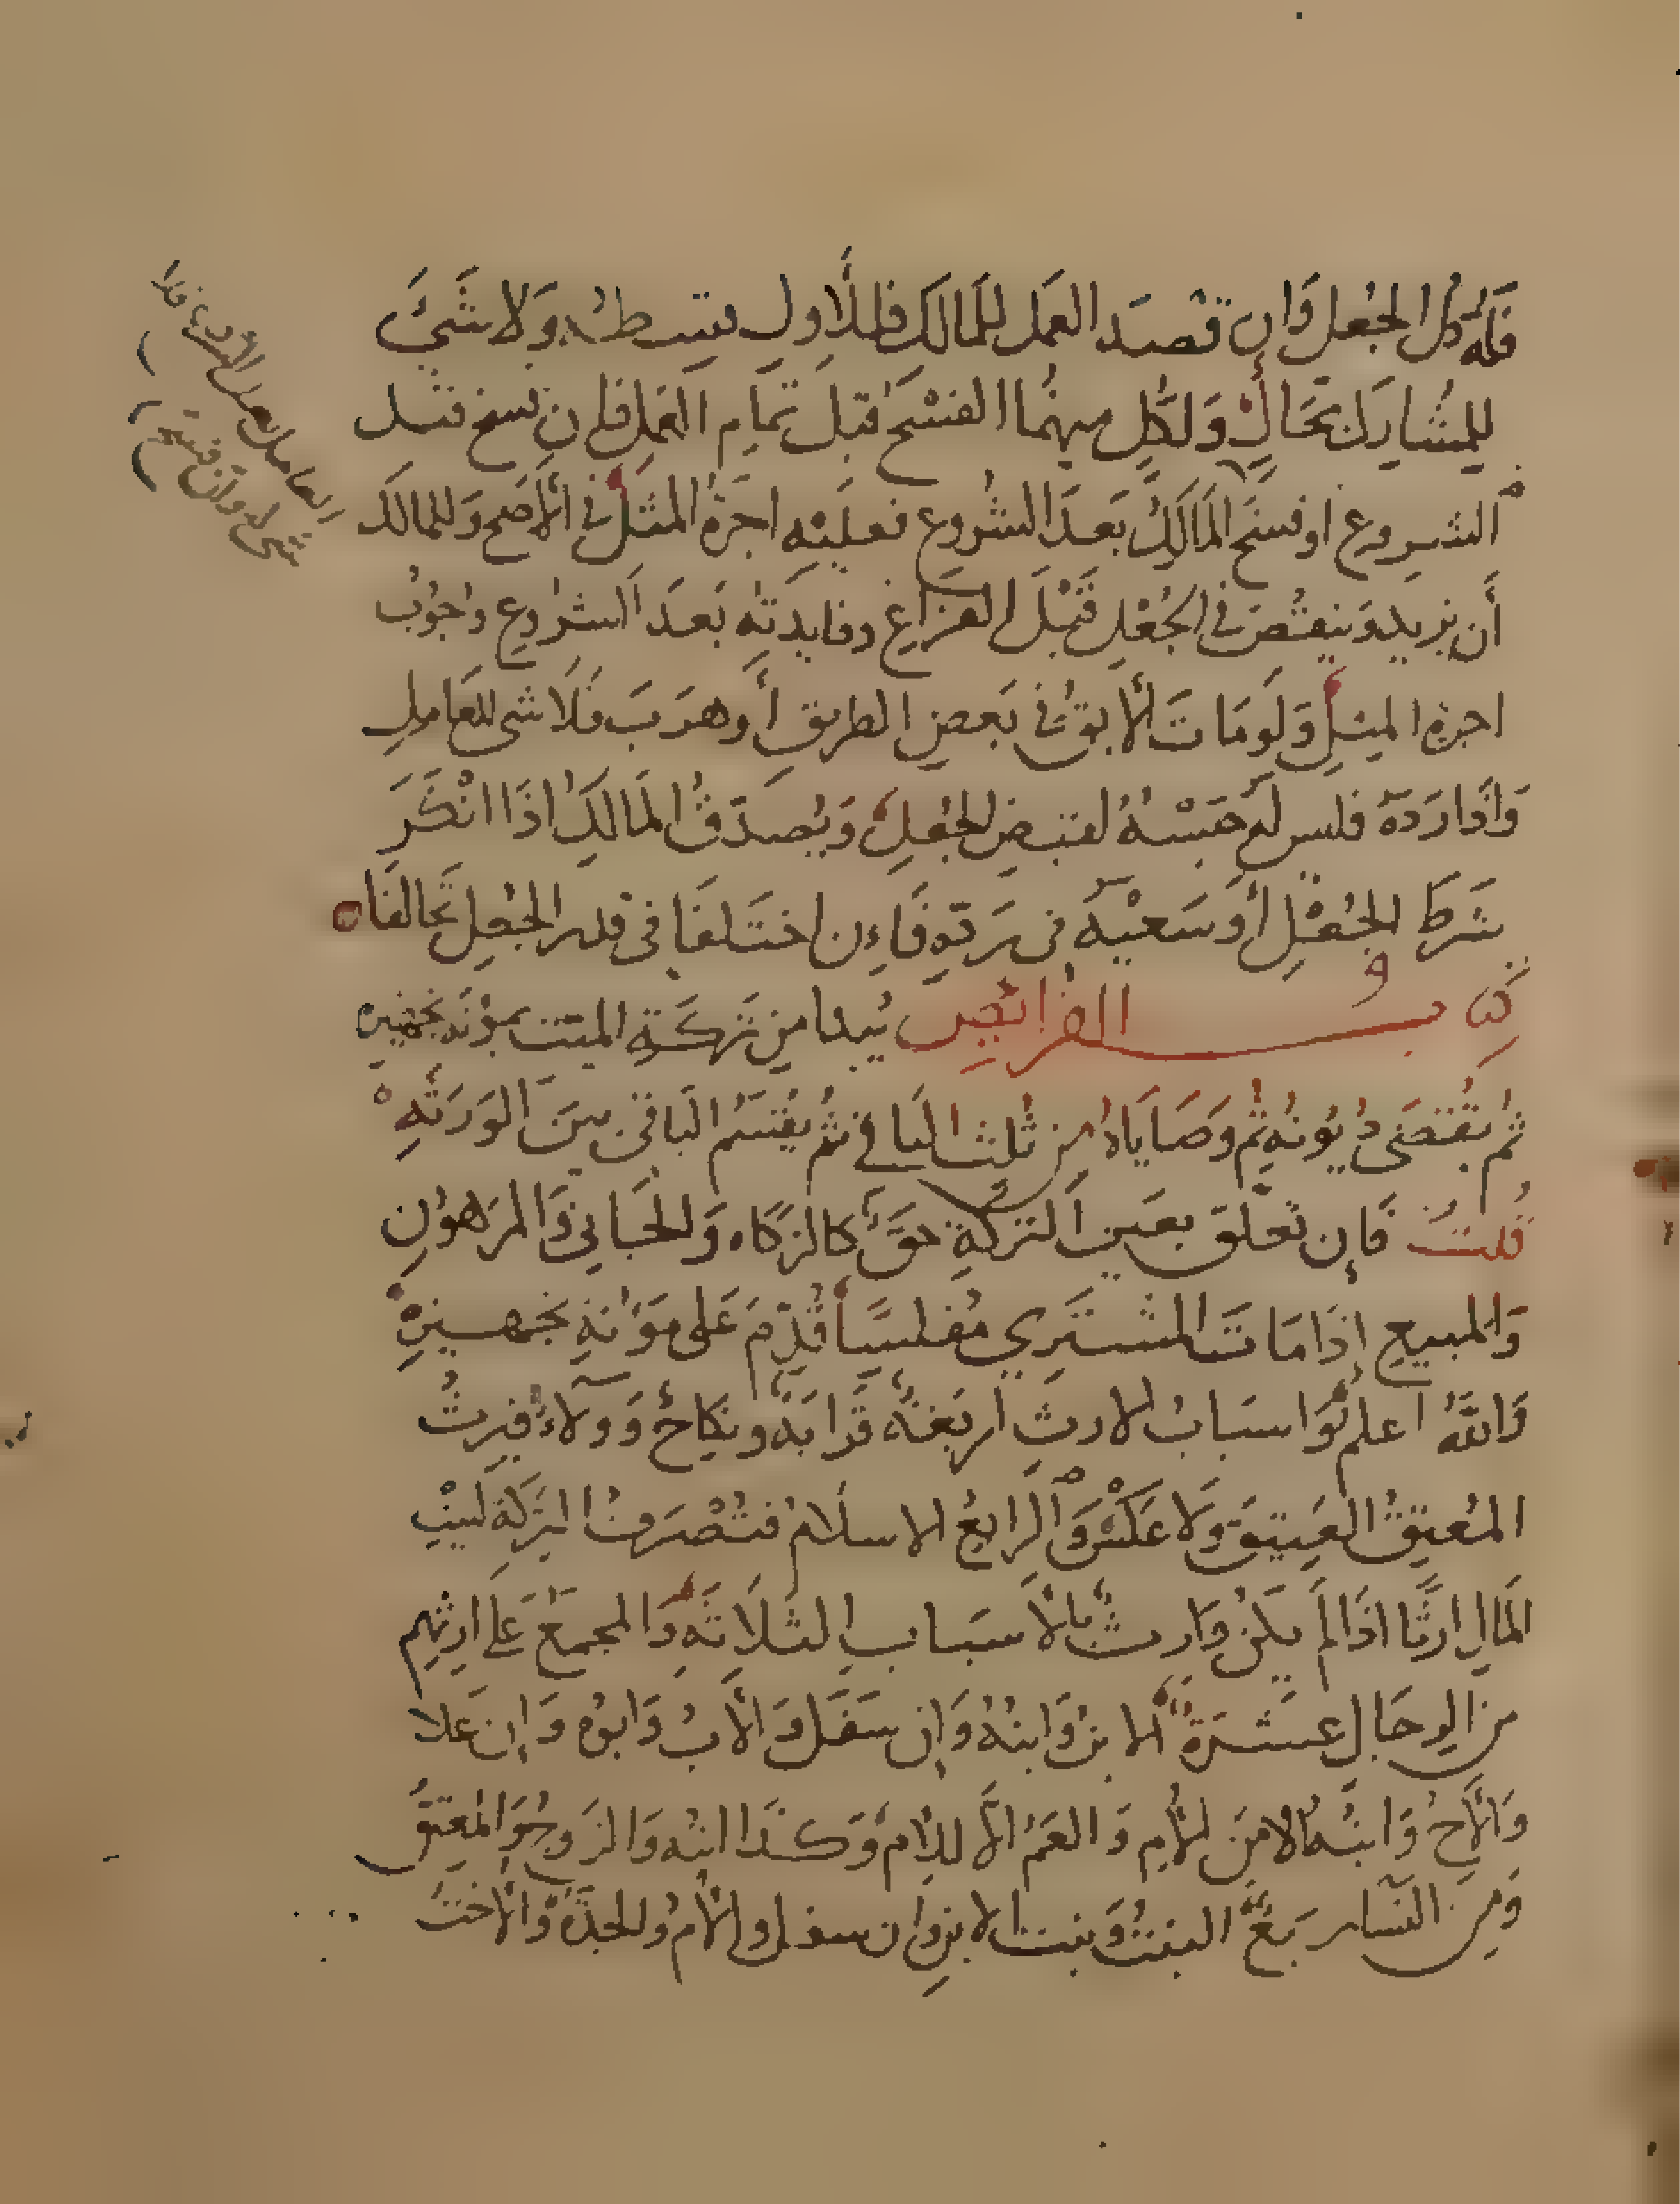 فله كل الجعل وان قصد العمل للمالك فللاول قسطه ولا شيئ
للمشارك بحال ولكل منهما الفسخ قبل تمام العمل فان فسخ قبل
الشروع او فسخ المالك بعد الشروع فعليه اجرة المثل في الاصح وللمالك
أن يزيد وينقص في الجعل قبل الفراغ وفايدته بعد الشروع وجوب
اجرة المثل ولو مات الابق في بعض الطريق أو هرب فلا شى للعامل
واذا رده فليس له حبسه لقبض الجعل ويصدق المالك اذا انكر
شرط الجعل أو سعيه في رده فإن اختلفا في قدر الجعل تحالفا
كتاب الفرائض يبدا من تركة الميت بمؤنة تجهيزه
ثم تقضى ديونه ثم وصاياه من ثلث الباقي ثم يقسم الباقي بين الورثة
قلت فإن تعلق بعين التركة حق كالزكاه والجاني والمرهون
والمبيع إذا مات المشتري مفلسا قدم على مؤنة تجهيزه
والله اعلم واسباب الارث اربعة قرابة ونكاح وولاء فيرث
المعتق العتيق ولا عكس والرابع الاسلام فتصرف التركة لبيت
المال ارثا اذا لم يكن وارث بالأسباب الثلاثة والمجمع على ارثهم
من الرجال عشرة الابن وابنه وإن سفل والاب وابوه وإن علا
والاخ وابنه الا من الأم والعم الا للأم وكذا ابنه والزوج والمعتق
ومن النسا سبع البنت وبنت الابن وان سفل والأم والجدة والأخت
العامل بعد الشروع فلا
شى له وان فسخ